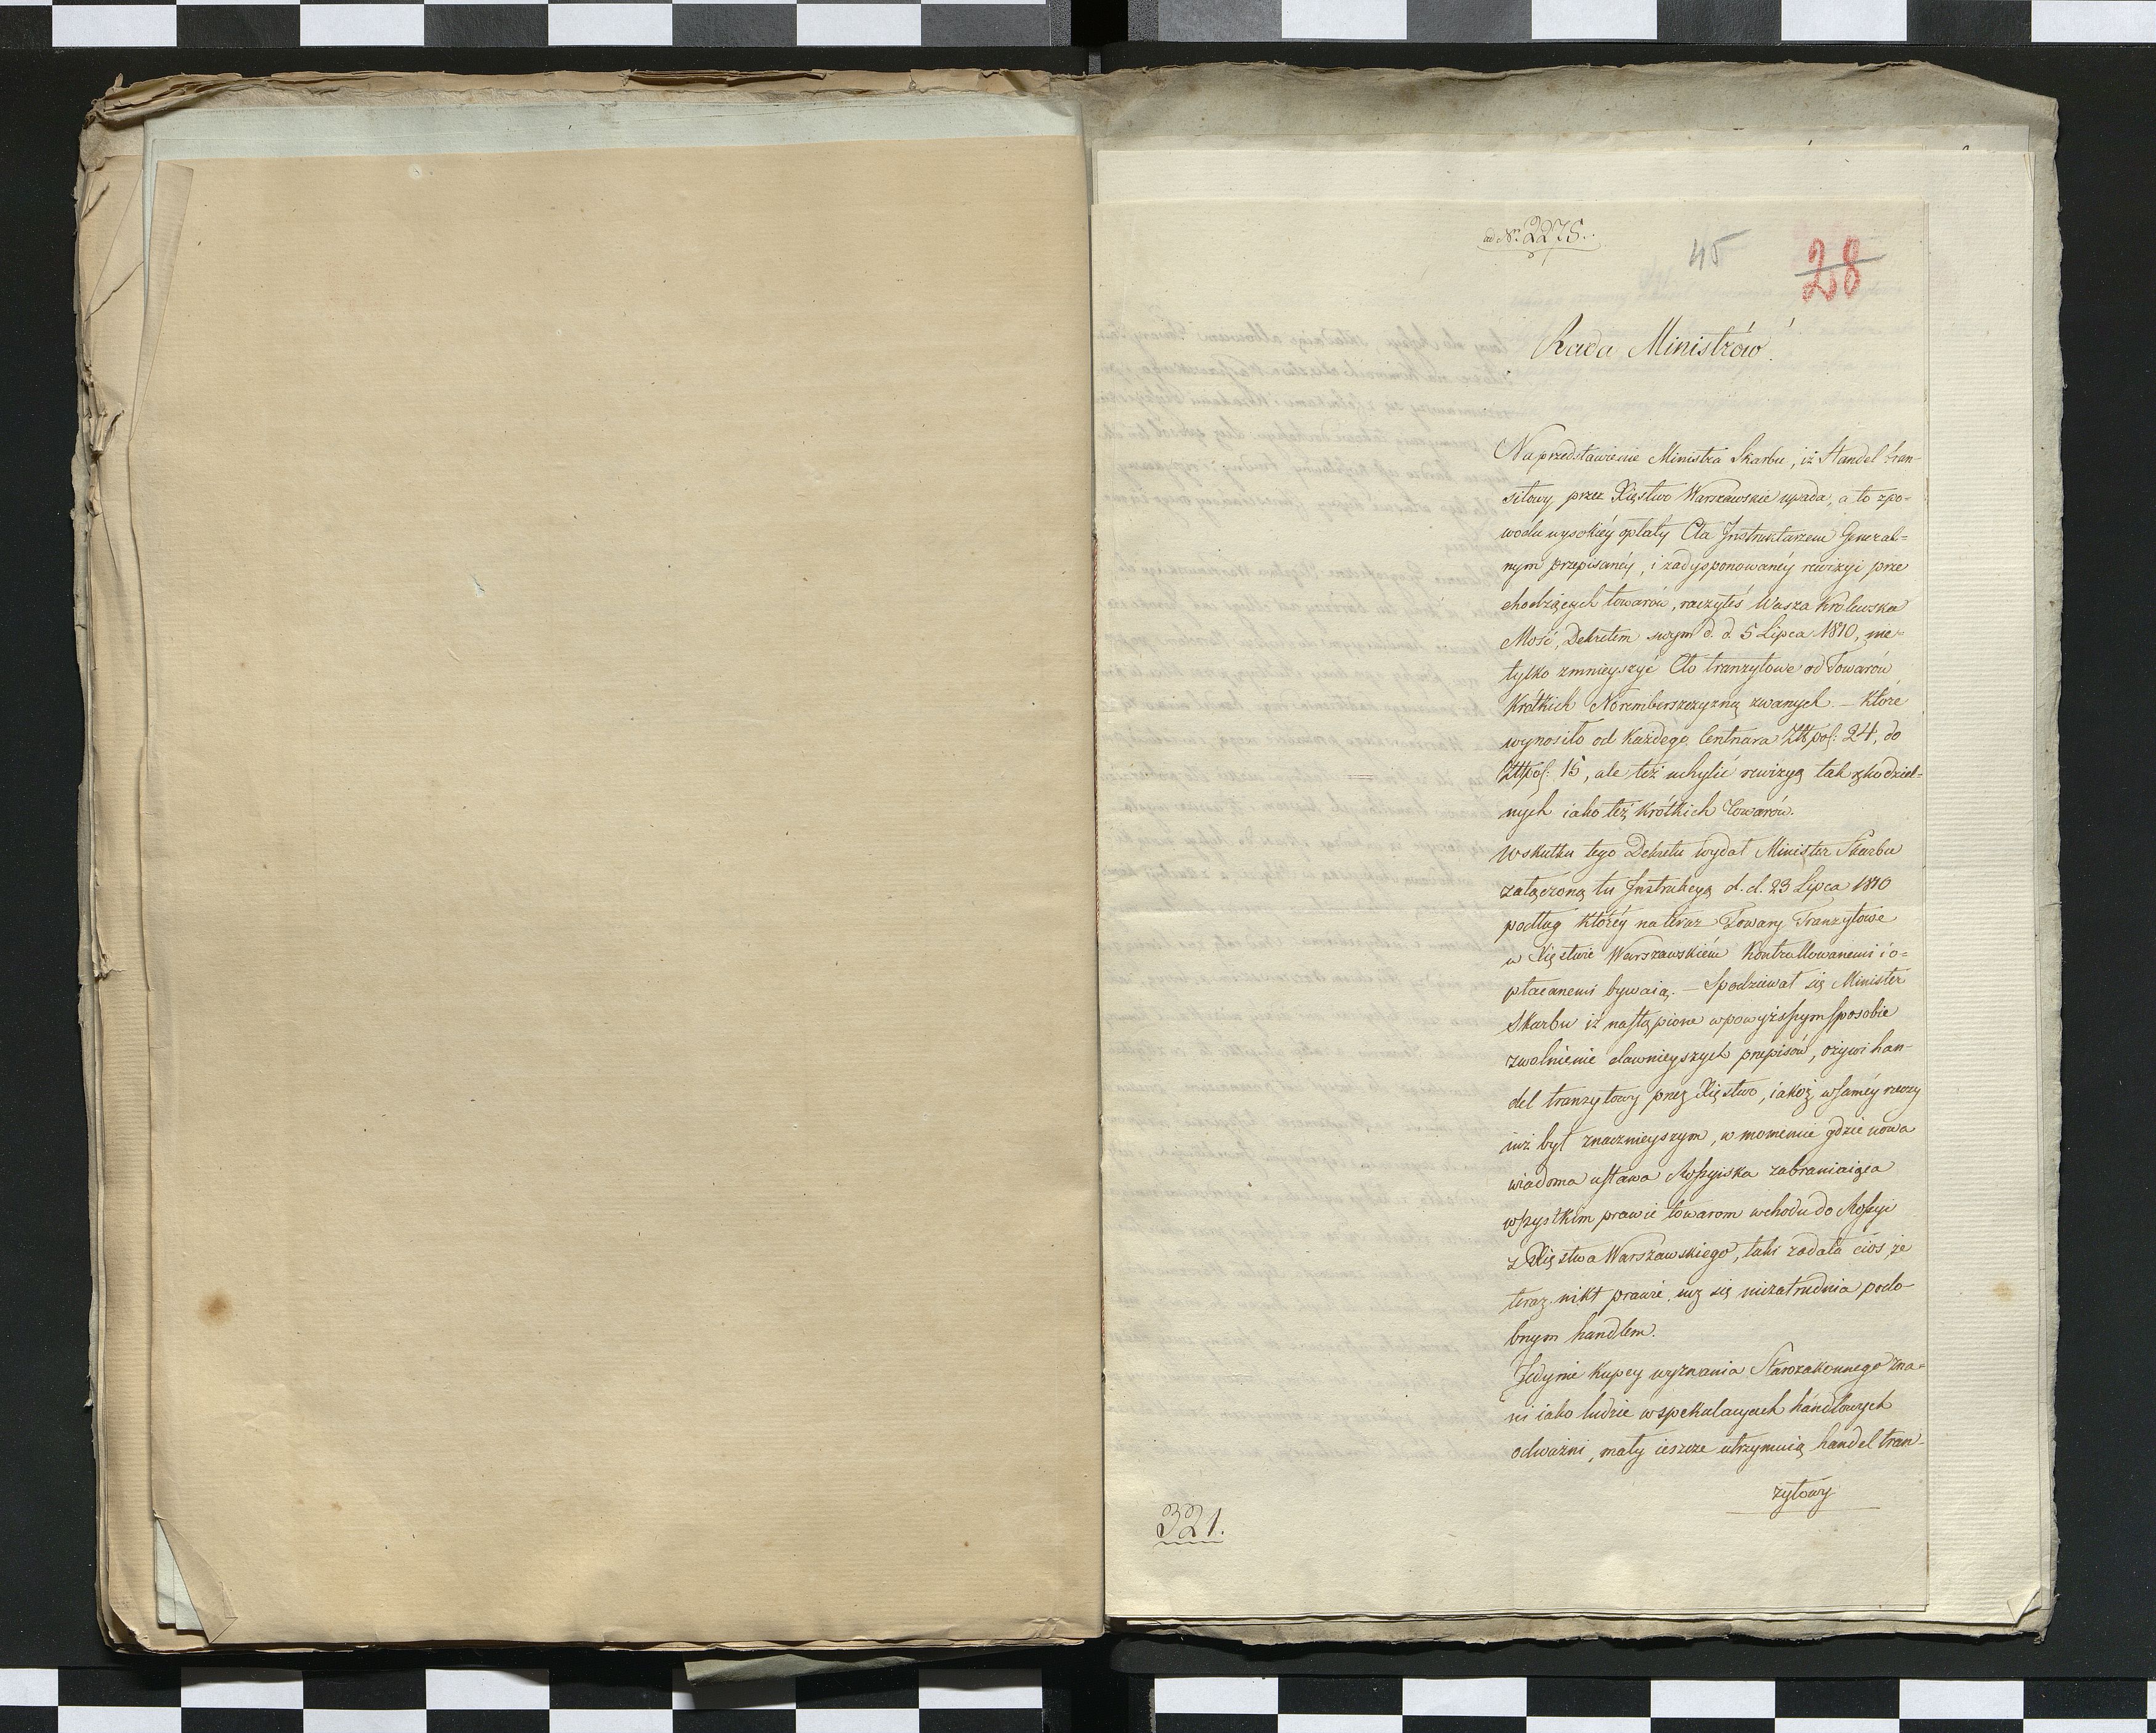 ad Nr 2278.
45
28
Rada Ministrów
Na przedstawienie Ministra Skarbu, iż Handel tran-
sitowy przez Xięstwo Warszawskie upada, a to zpo-
wodu wysokiéy opłaty Cła Instruktarzem General=
nym przepisanéy, i zadysponowanéy rewizyi prze
chodzących towarów, raczyłeś Wasza Królewska
Mość, Dekretem swym d. d. 5 Lipca 1810, nie-
tylko zmnieyszyć Cło tranzytowe od Towarów
Krótkich Noremberszczyzną zwanych – które
wynosiło od każdego Centnara Złtpol: 24, do
Złtpol: 15, ale też uchylić rewizyą tak
nych iako też krótkich Towarów.
Wskutku tego Dekretu wydał Minister Skarbu
załączoną tu Instrukcyą d. d. 23 Lipca 1810
podług któréy na teraz Towary Tranzytowe
w Xięstwie Warszawskiém Kontrollowanemi i o=
płacanemi bywaią. – Spodziewał się Minister
Skarbu iż nastąpione wpowyższym sposobie
zwolnienie dawnieyszych przepisów, ożywi han-
del tranzytowy przez Xięstwo, iakoż wsaméy rzeczy
iuż był znacznieyszym, w momencie gdzie nowa
wiadoma ustawa Rossyiska zabraniaiąca
wszystkim prawie towarom wchodu do Rossyi
z Xięstwa Warszawskiego, taki zadała cios, że
teraz nikt prawie iuż się niezatrudnia podo-
bnym handlem.
Jedynie kupcy wyznania Starozakonnego zna=
ni iako ludzie wspekulacyach handlowych
odważni, mały ieszcze utrzymuią handel tran-
zytowy
321.